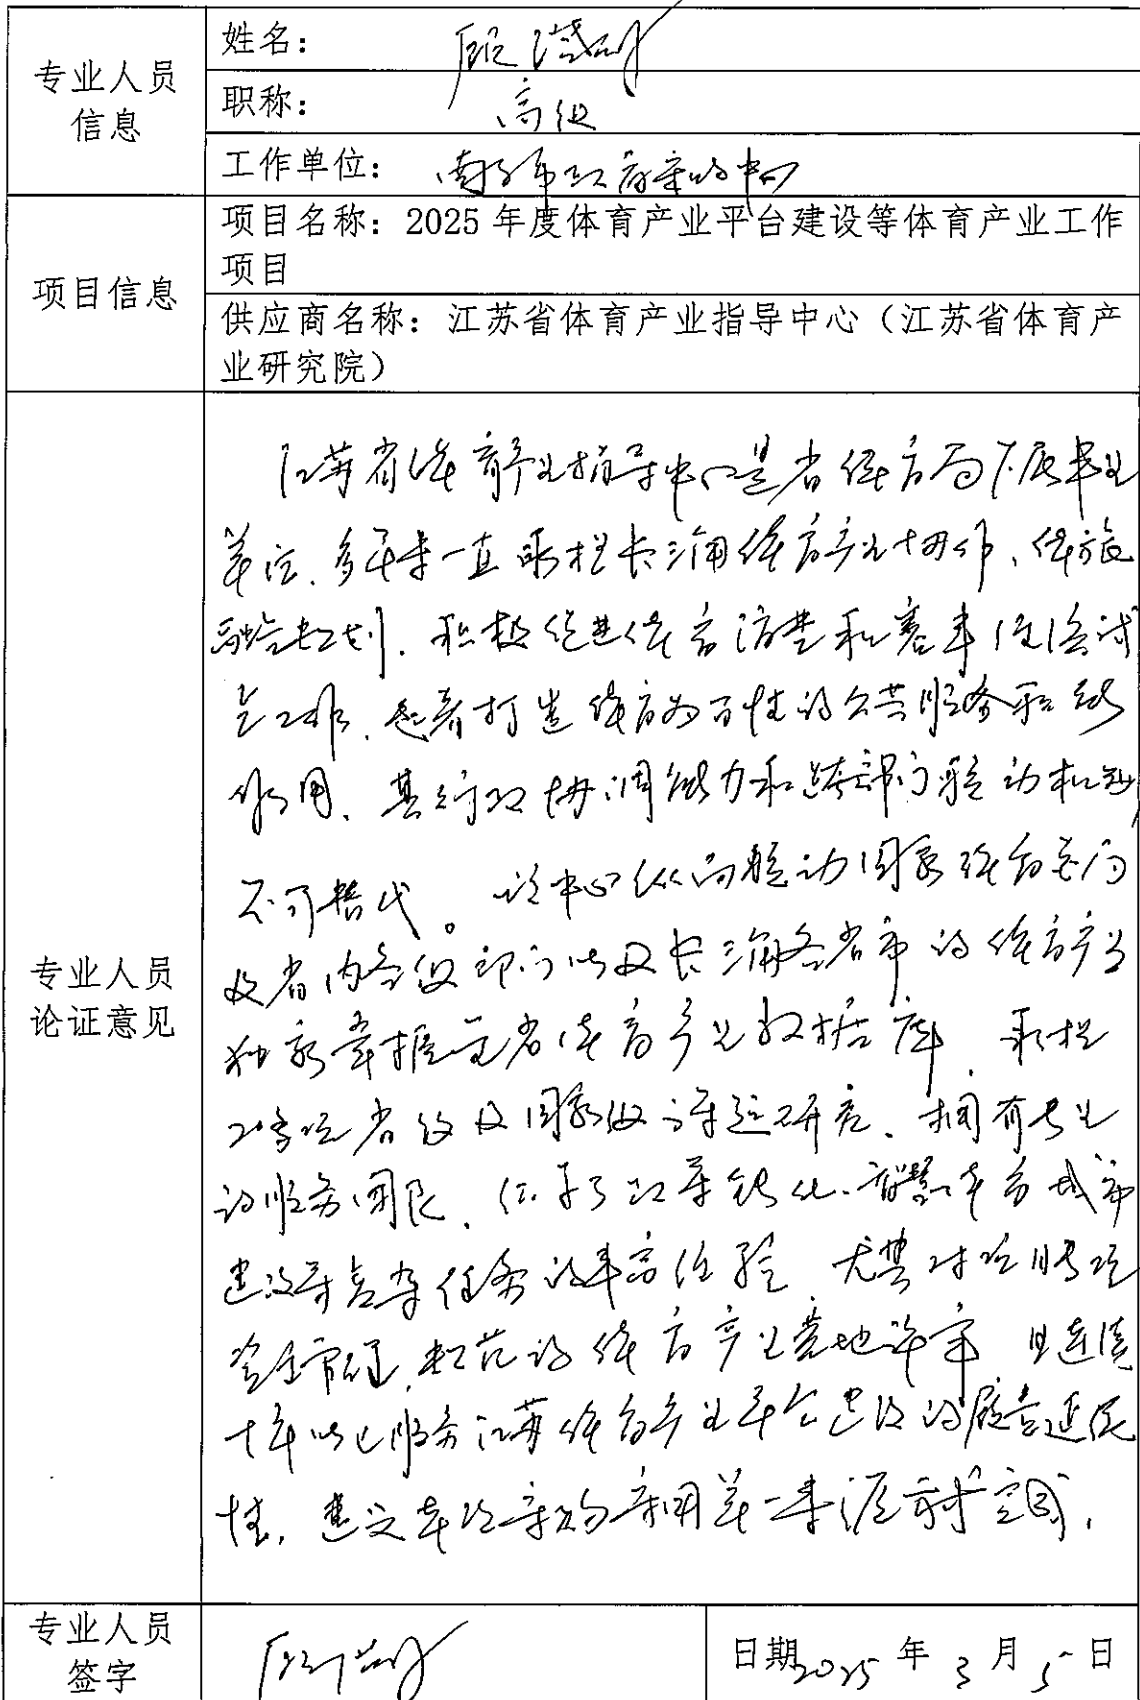 专业人员
信息
姓名：顾
职称：高级
工作单位：南京市政府采购中心
项目信息
项目名称：2025 年度体育产业平台建设等体育产业工作
项目
供应商名称：江苏省体育产业指导中心（江苏省体育产
业研究院）
专业人员
论证意见
江苏省体育产业指导中心是省体育局下属事业
单位、多年来一直承担长三角体育产业协作、体旅
融合规划、积极促进体育消费和赛事经济试
点工作、起着打造体育为百姓的公共服务和
作用、其行政协调能力和跨部门联动机制
不可替代。该中心纵向联动国家体育总局
及省内各级部门以及长三角各省市的体育产业
独家掌握全省体育产业数据库、承担
20多项省级及国家级课题研究、拥有专业
的服务团队、任务的丰富经验 尤其对
体育产业基地评审 且连续
十年以上服务江苏体育产业平台建设的延续
性，建议本次采购采用单一来源方式
专业人员
签字
日期2025 年 3 月 5 日